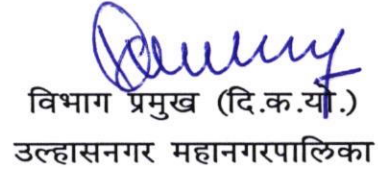 विभाग प्रमुख (दि.क.यो.)
उल्हासनगर महानगरपालिका